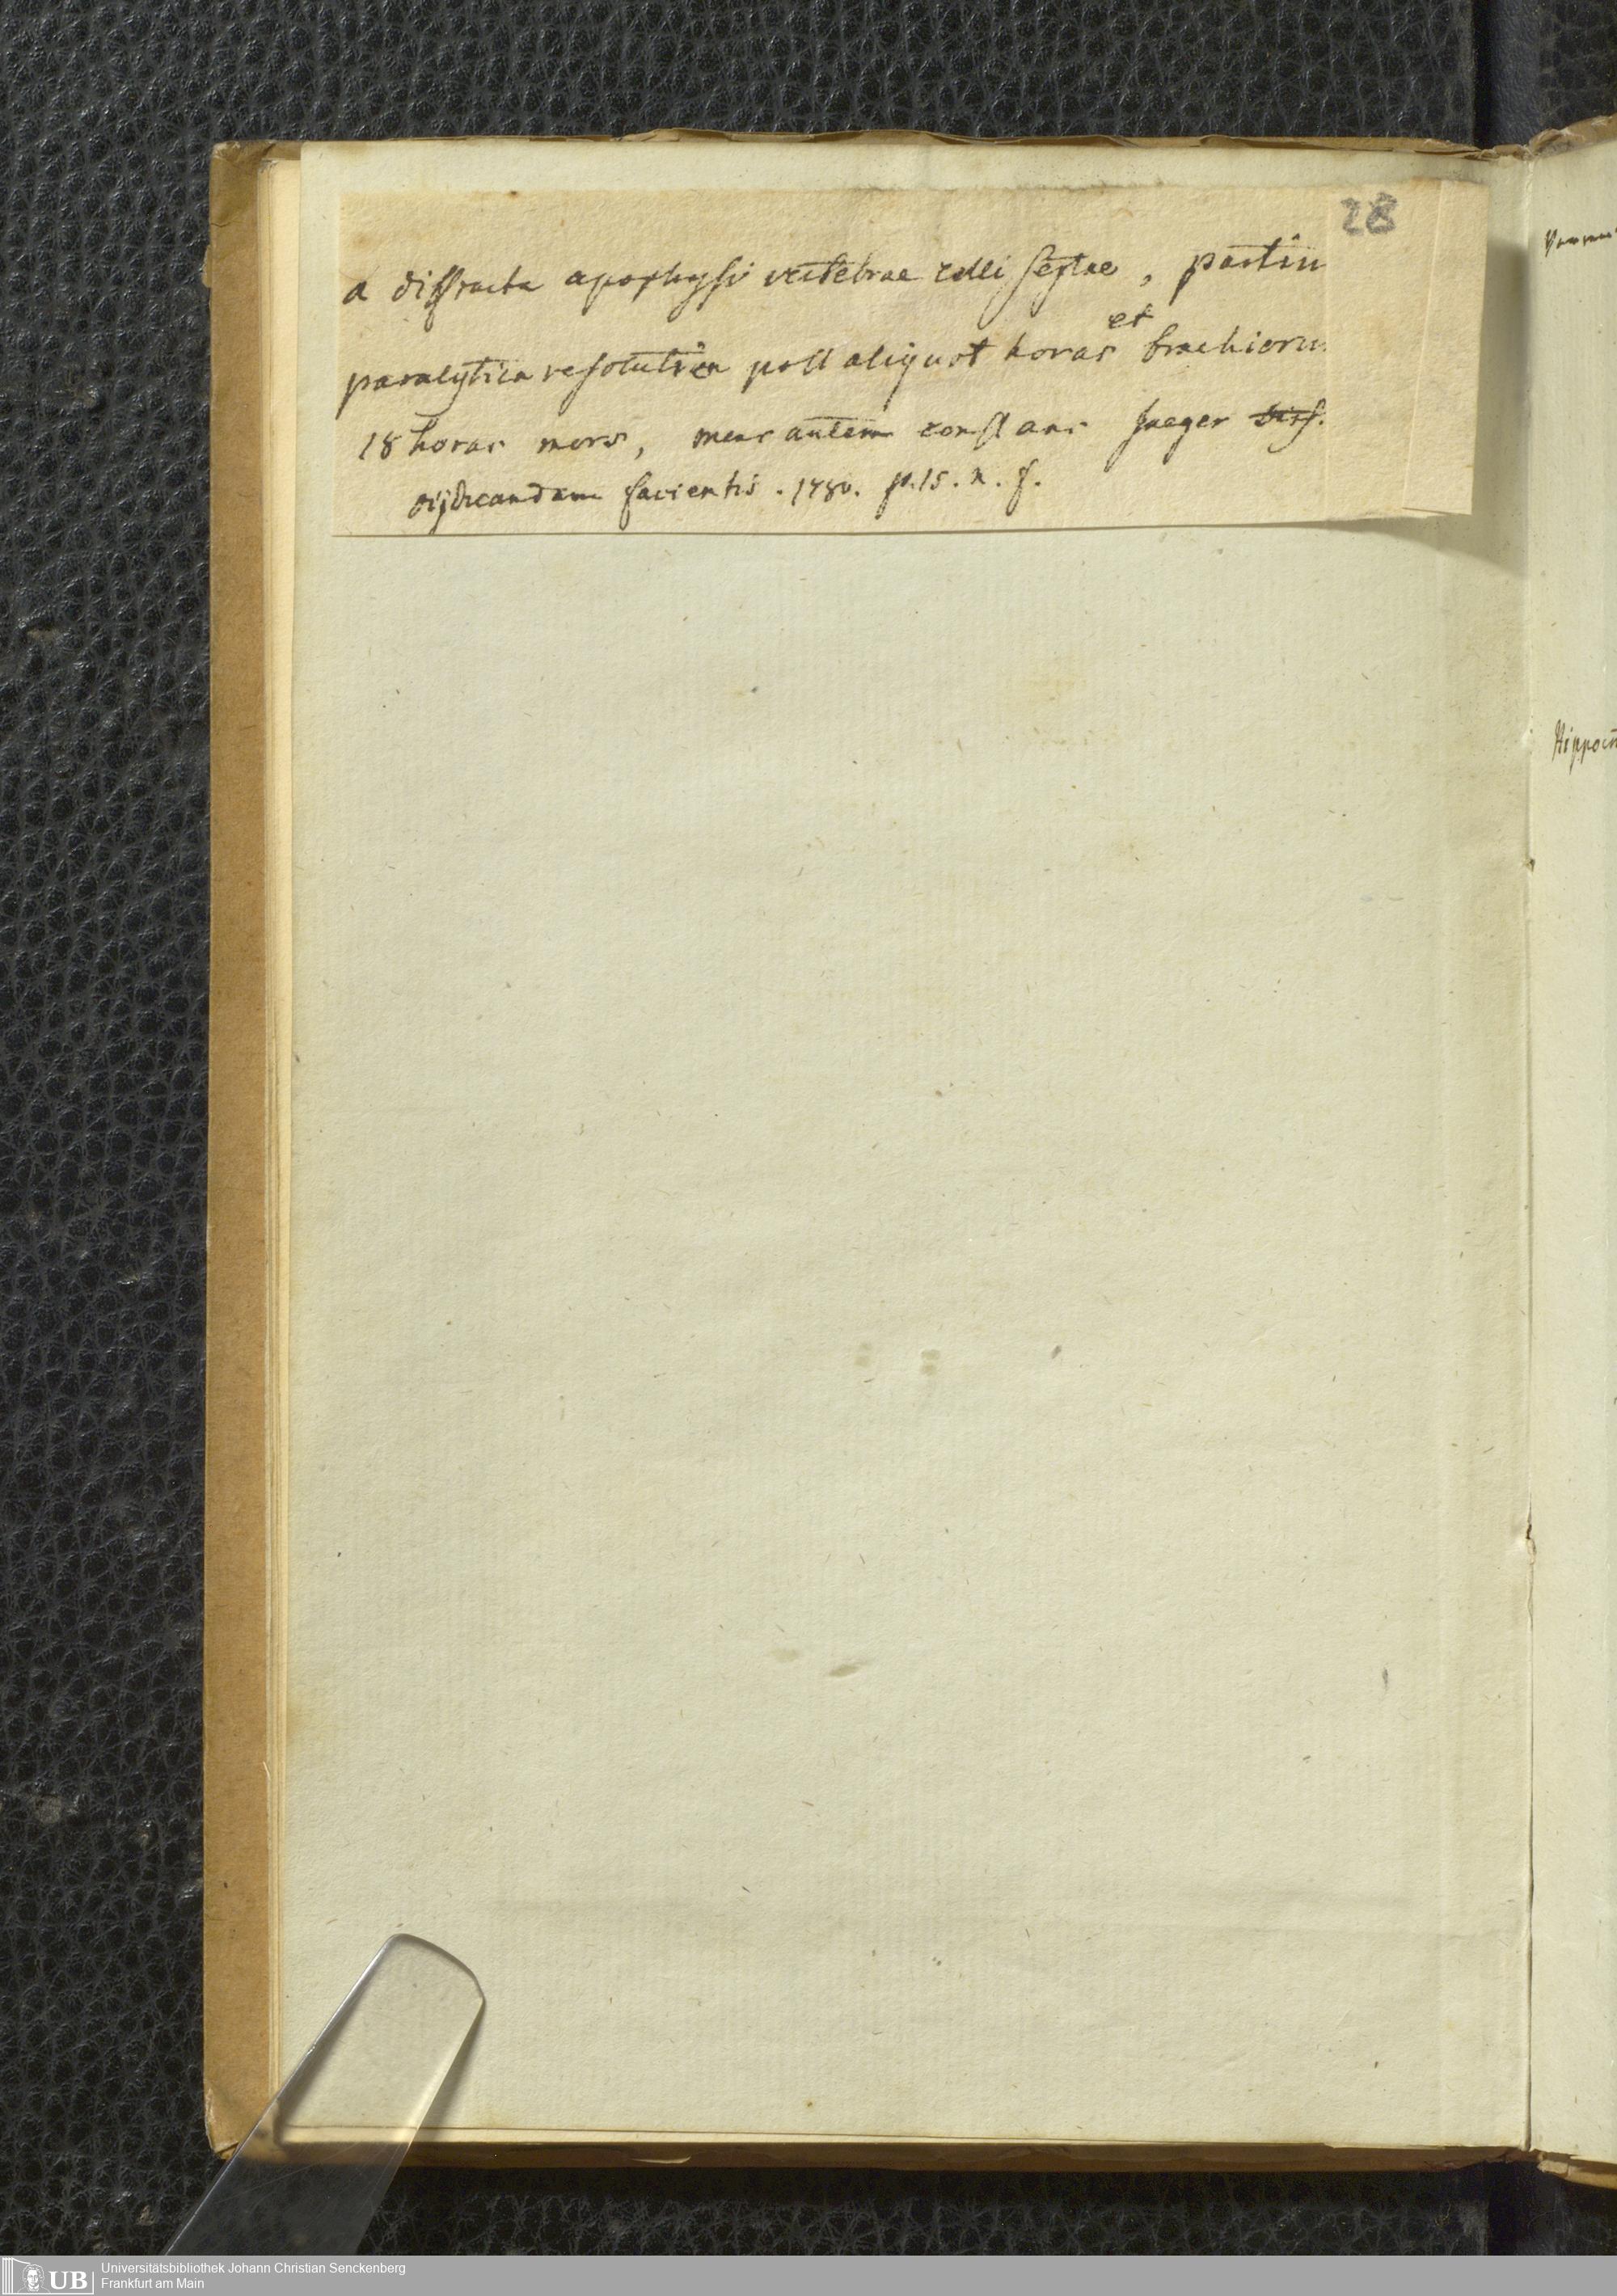 28
a diffracta apophysi vertebrae colli sextae, partiu
paralytica resolutio post aliquot horas et brachioru
18 horas mors, mens autem constans Jaeger Diss.
dijudicandam facientis. 1780. p. 15. n. f.
Hippocr
Universitätsbibliothek Johann Christian Senckenberg
Frankfurt am Main
UB